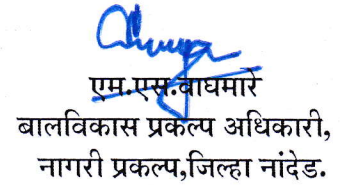 एम.एस.वाघमारे
बालविकास प्रकल्प अधिकारी,
नागरी प्रकल्प,जिल्हा नांदेड.